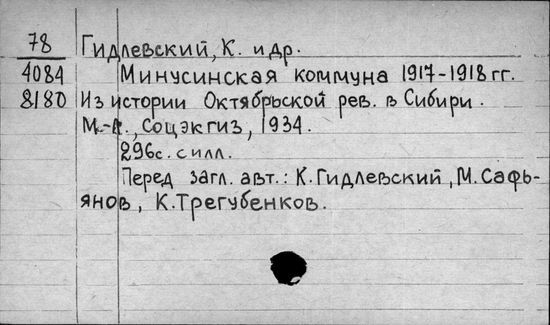 78 Гидлевский, К. и др.
4084 Минусинская коммуна 1917-1918 гг.
8180 Из истории Октябрьской рев. в Сибири.
М.-Л., Соцэкгиз, 1934.
296с. с илл.
Перед загл. авт.: К. Гидлевский, М. Сафь-
янов, К. Трегубенков.